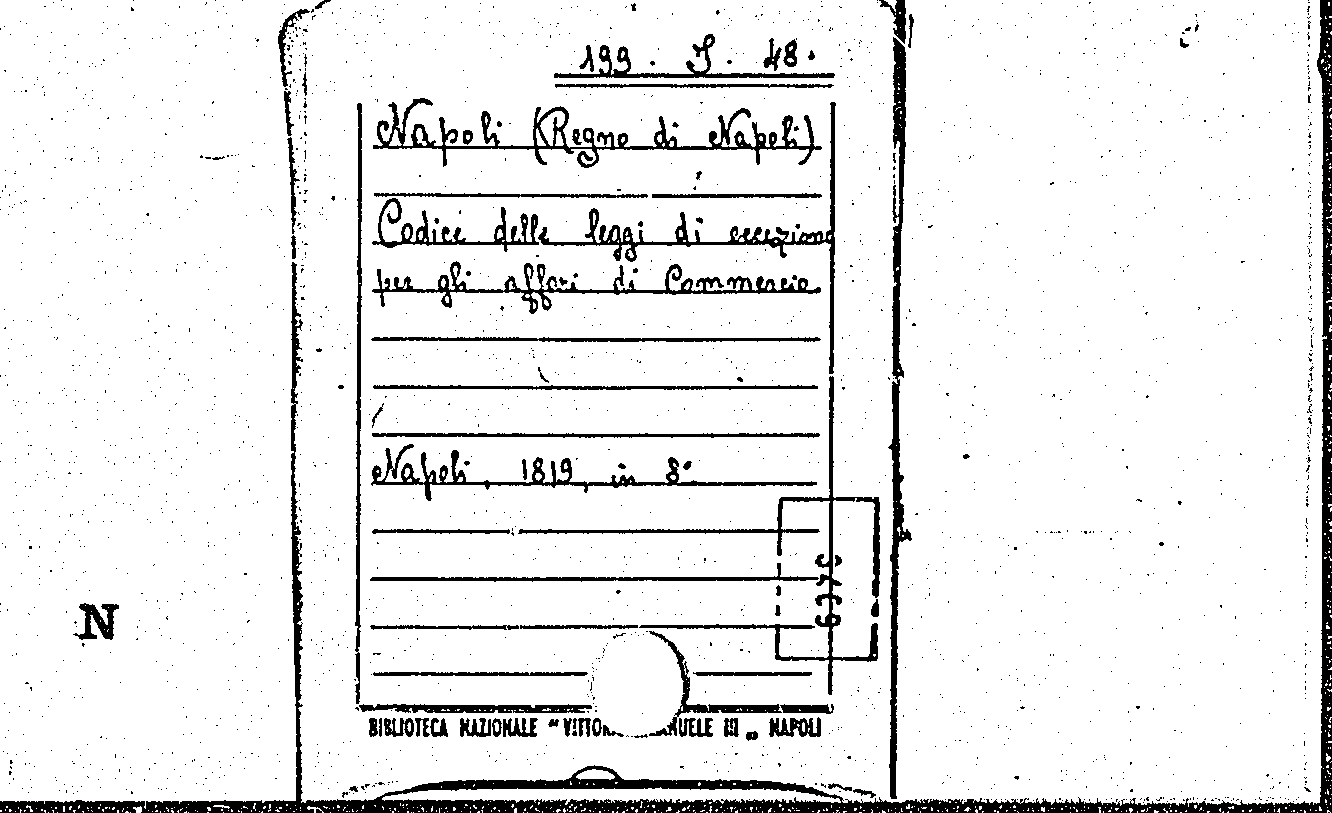 199 . J . 48.
Napoli (Regno di Napoli)
Codice delle leggi di eccezione
per gli affari di Commercio.
Napoli, 1819, in 8°
N
BIBLIOTECA NAZIONALE "VITTOR NUELE III" NAPOLI